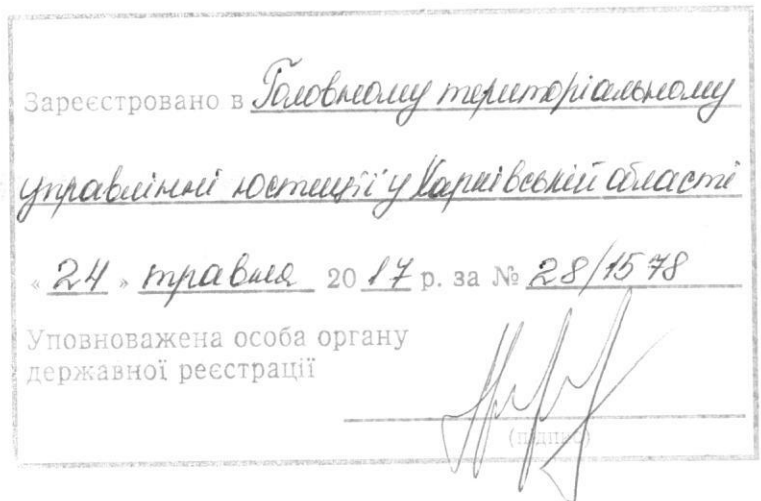 Зареєстровано в Головному територіальному
управлінні юстиції у Харківській області
« 24 » травня 20 17 р. за № 28/1578
Уповноважена особа органу
державної реєстрації
(підпис)